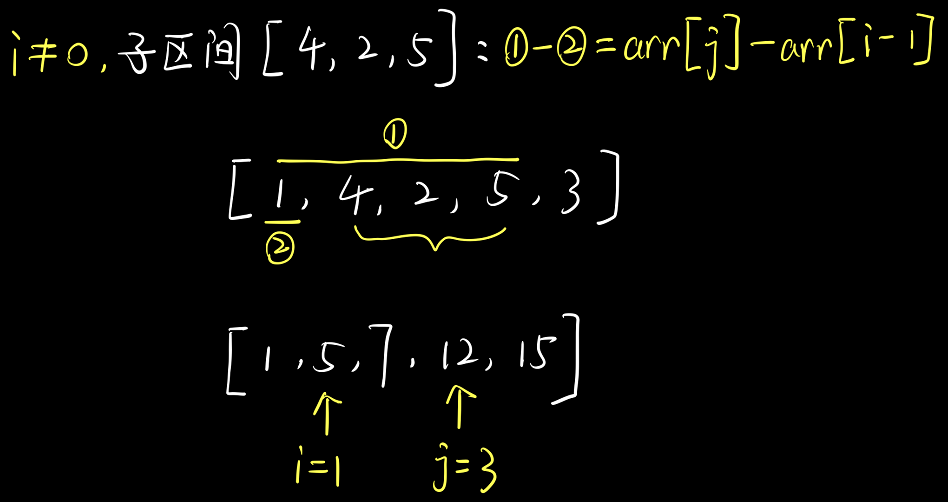 i≠0,子区间[4,2,5]:①-②=arr[j]-arr[i-1]
①
[1,4,2,5,3]
②
[1,5,7,12,15]
↑ ↑
i=1 j=3